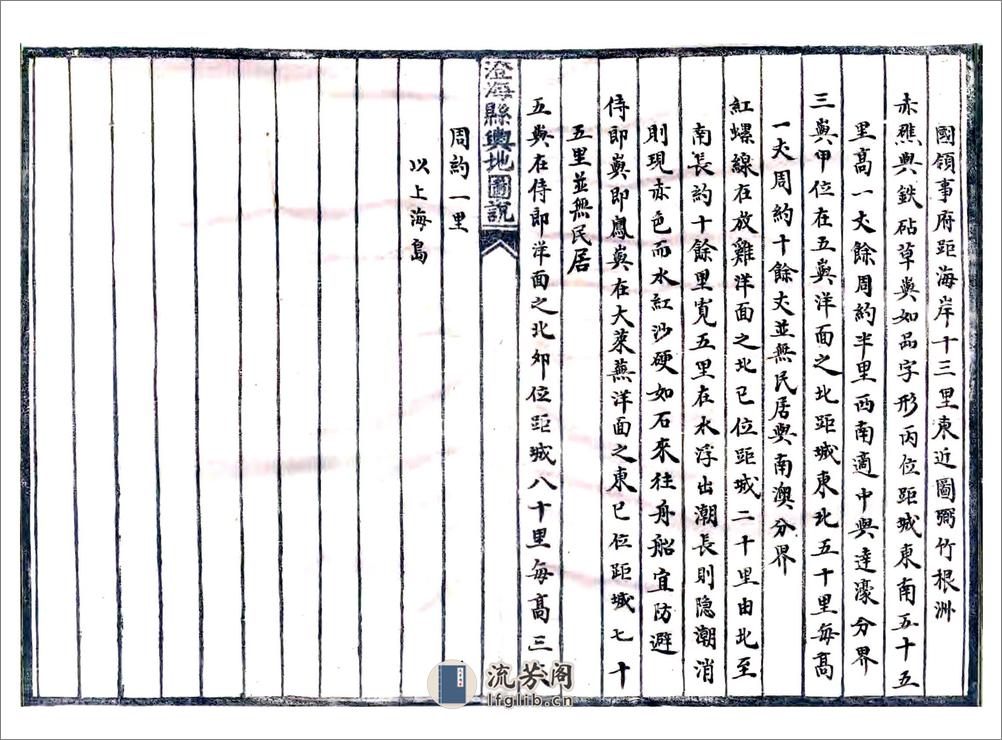 國領事府距海岸十三里東近圖弼竹根洲
赤礁與鉄砧草㠘如品字形丙位距城東南五十五
里高一丈餘周約半里西南適中與達濠分界
三㠘甲位在五㠘洋面之北距城東北五十里每高
一丈周約十餘丈並無民居與南澳分界
紅螺線在放雞洋面之北巳位距城二十里由北至
南長約十餘里寬五里在水浮出潮長則隐潮消
則現赤色而水紅沙硬如石來往舟船宜防避
侍即㠘即鳳㠘在大萊蕪洋面之東巳位距城七十
五里並無民居
五㠘在侍即洋面之北夘位距城八十里每高三丈
澄海縣輿地圖說
周約一里
以上海島
流芳阁
lfglib.cn